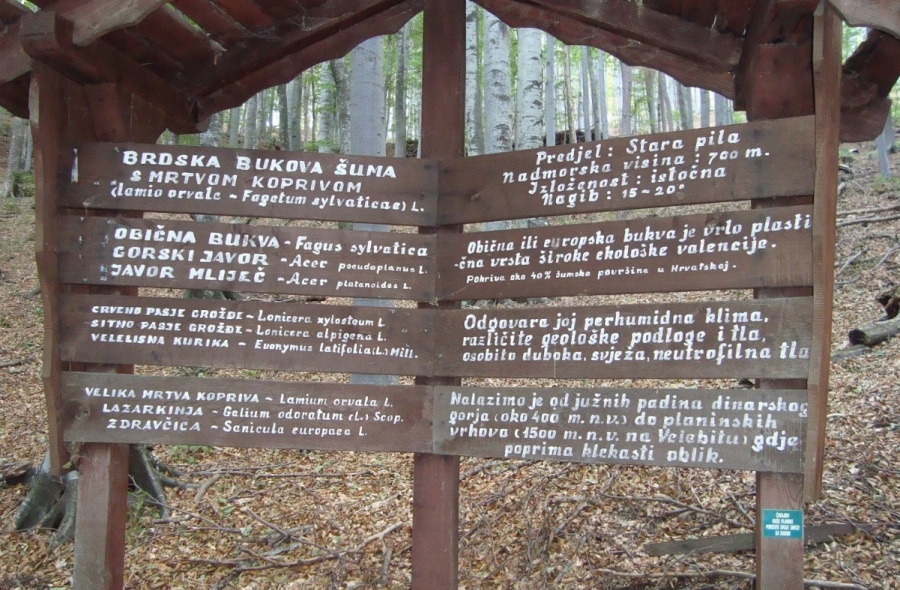 BRDSKA BUKOVA ŠUMA
S MRTVOM KOPRIVOM
(lamio orvale ~ Fagetum sylvaticae) L.
OBIČNA BUKVA - Fagus sylvatica
GORSKI JAVOR - Acer pseudoplanus L.
JAVOR MLIJEČ - Acer platanoides L.
CRVENO PASJE GROŽĐE - Lonicera xylosteum L.
SITNO PASJE GROŽĐE - Lonicera alpigena L.
VELELISNA KURIKA - Euonymus latifolia (L.) Mill.
VELIKA MRTVA KOPRIVA - Lamium orvala L.
LAZARKINJA - Galium odoratum (L.) Scop.
ZDRAVČICA - Sanicula europaea L.
Predjel : Stara pila
Nadmorska visina : 700 m.
Izloženost : istočna
Nagib : 15-20°
Obična ili europska bukva je vrlo plasti
-čna vrsta široke ekološke valencije.
Pokriva oko 40% šumske površine u Hrvatskoj.
Odgovara joj perhumidna klima,
različite geološke podloge i tla,
osobito duboka, svježa, neutrofilna tla
Nalazimo je od južnih padina dinarskog
gorja (oko 400 m.n.v.) do planinskih
vrhova (1500 m.n.v. na Velebitu) gdje
poprima klekasti oblik.